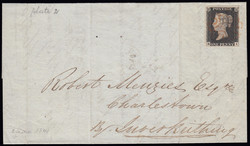 plate 2
POSTAGE
ONE PENNY
Robert Menzies Esqr
Charlestown
By Inverkeithing